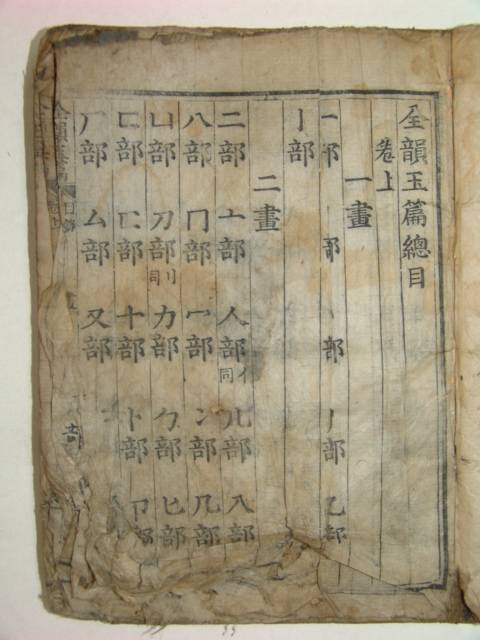 全韻玉篇總目
卷上
一畫
一部 部 丶部 丿部 乙部
亅部
二畫
二部 亠部 人部 亻同 儿部 入部
八部 冂部 冖部 冫部 几部
凵部 刀部 刂同 力部 勹部 匕部
匚部 匸部 十部 卜部 卩部
厂部 厶部 又部
全韻玉篇 目錄